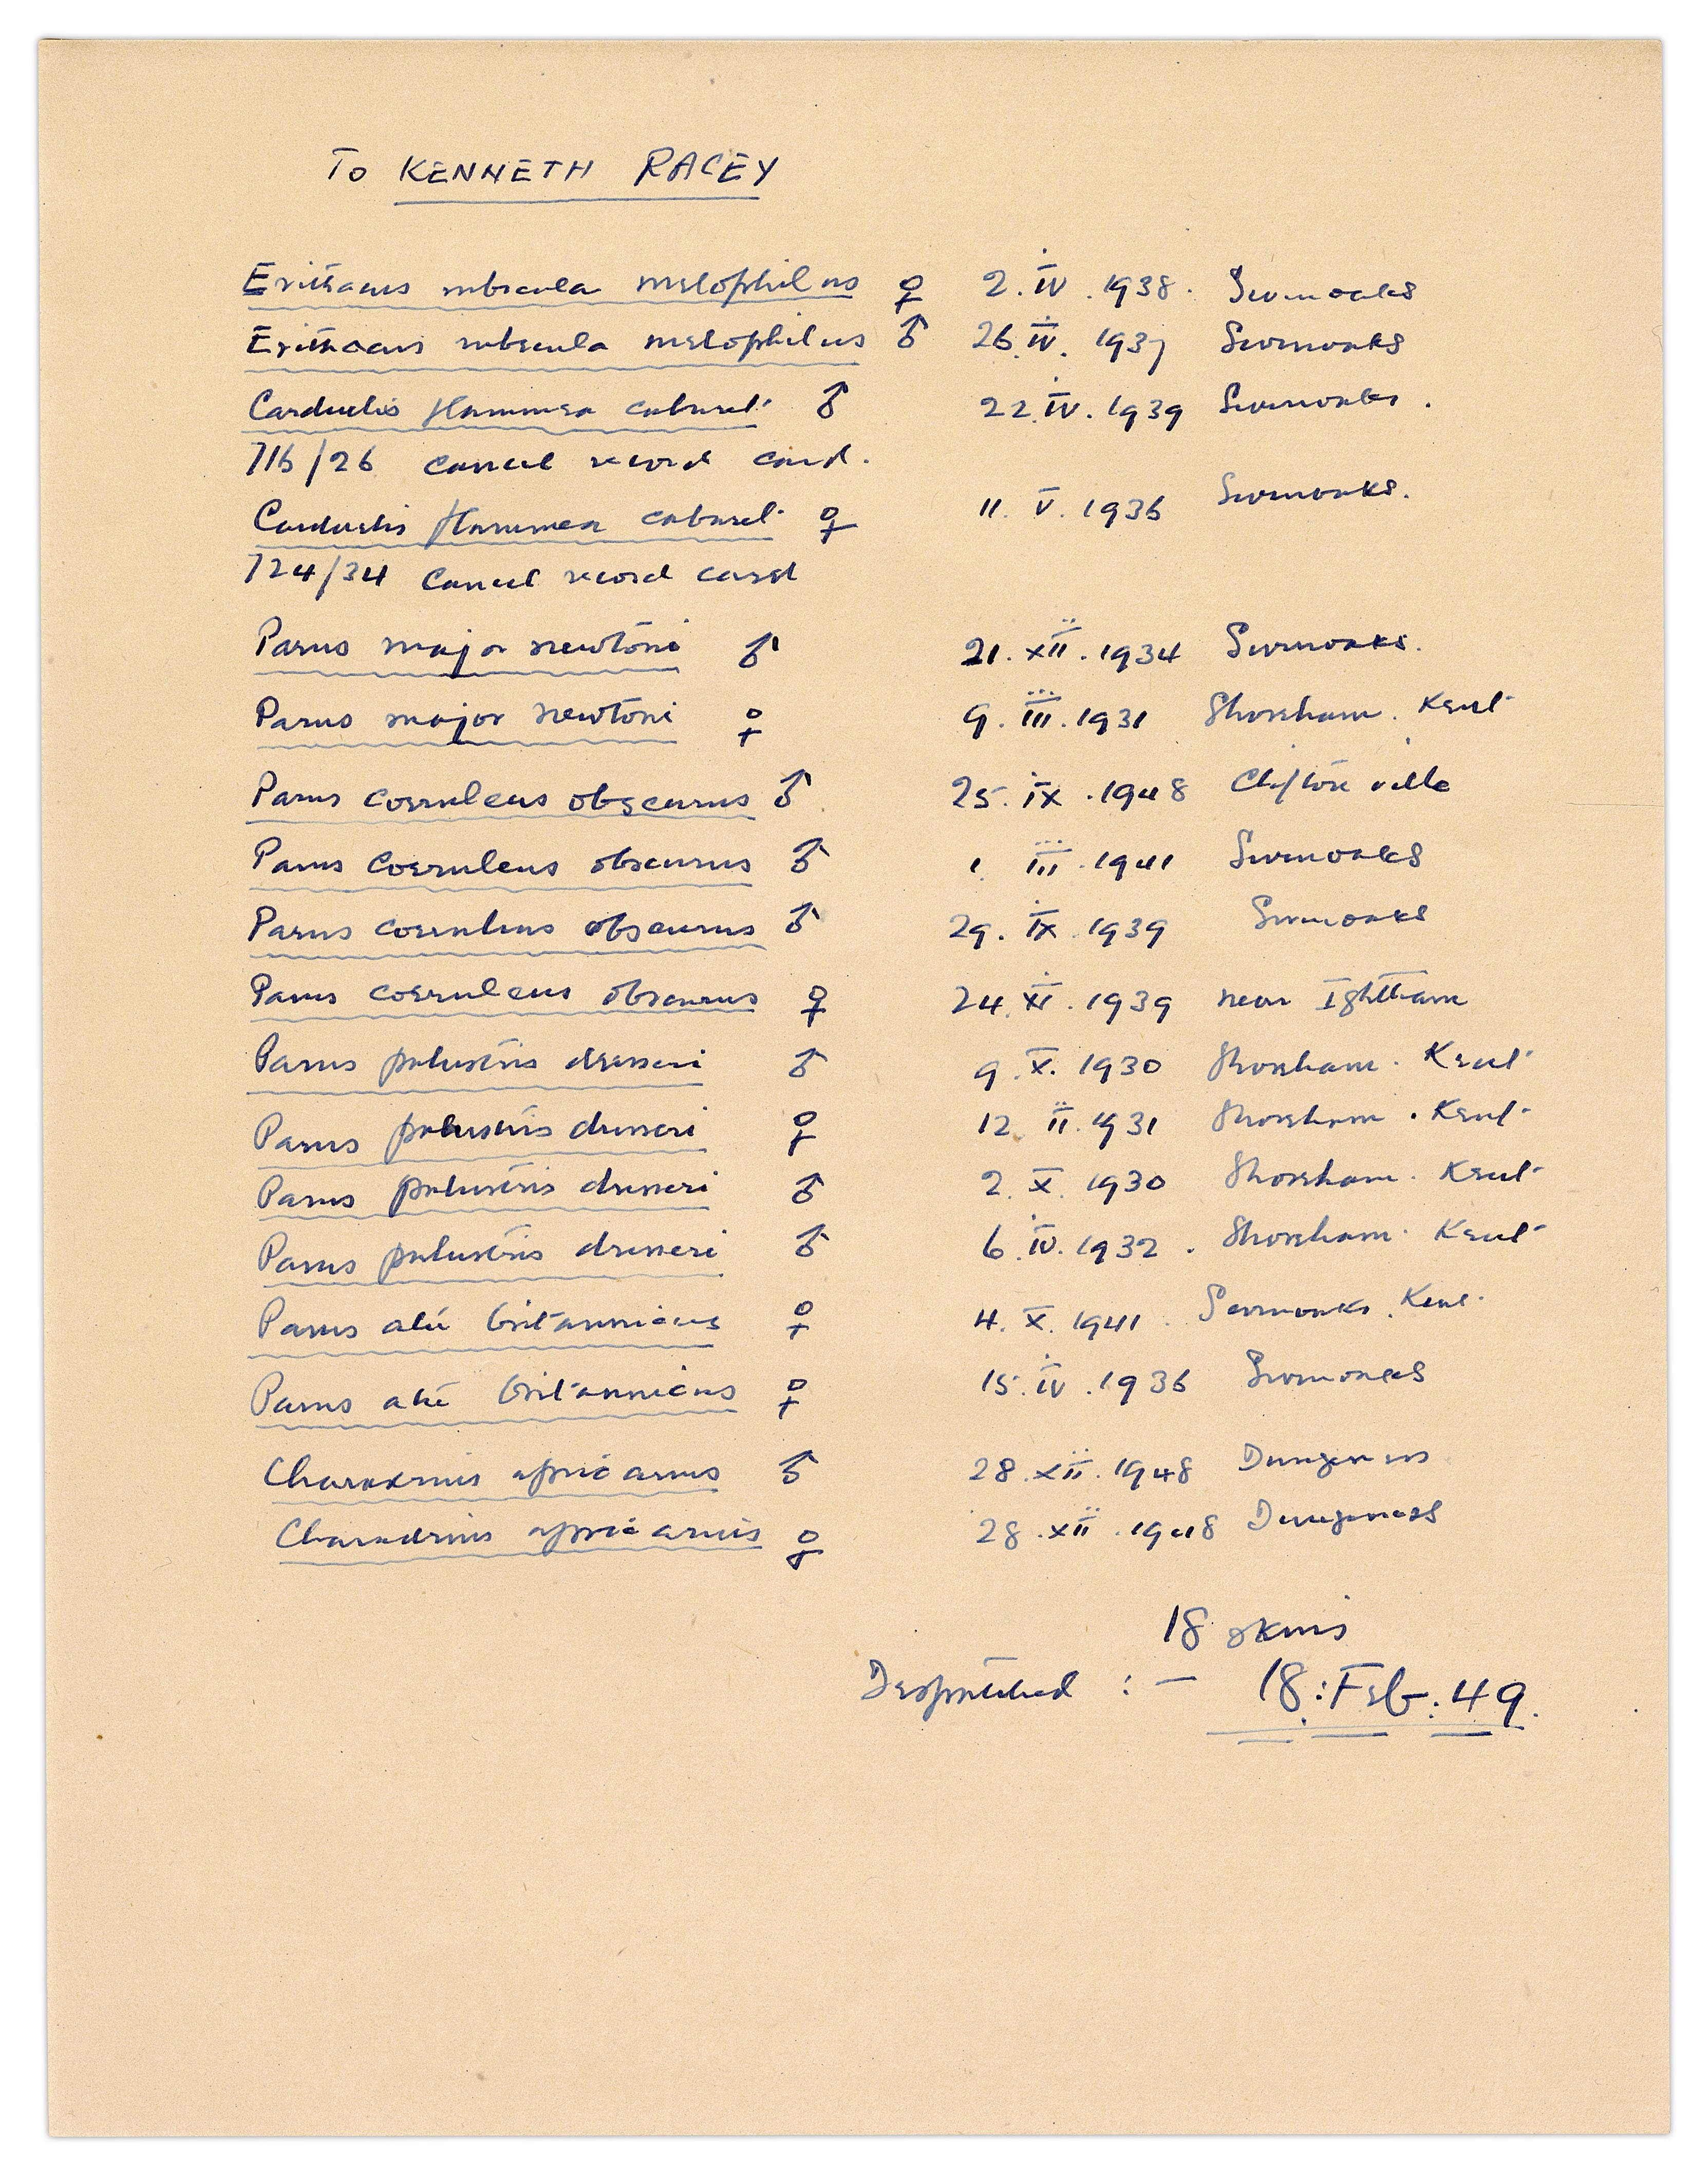 To KENNETH RACEY
Erithacus rubecula melophilus ♀ 2. IV. 1938. Sevenoaks
Erithacus rubecula melophilus ♂ 26. IV. 1937 Sevenoaks
Carduelis flammea cabaret ♂ 22. IV. 1939 Sevenoaks.
716/26 cancel record card.
Carduelis flammea cabaret ♀ 11. V. 1936 Sevenoaks.
724/34 Cancel record card
Parus major newtoni ♂ 21. XII. 1934 Sevenoaks.
Parus major newtoni ♀ 9. III. 1931 Shoreham. Kent
Parus coeruleus obscurus ♂ 25. IX. 1948 Cliftonville
Parus coeruleus obscurus ♂ 1. III. 1941 Sevenoaks
Parus coeruleus obscurus ♂ 29. IX. 1939 Sevenoaks
Parus coeruleus obscurus ♀ 24. XI. 1939 near Ightham
Parus palustris dresseri ♂ 9. X. 1930 Shoreham. Kent
Parus palustris dresseri ♀ 12. II. 1931 Shoreham. Kent
Parus palustris dresseri ♂ 2. X. 1930 Shoreham. Kent
Parus palustris dresseri ♂ 6. IV. 1932. Shoreham. Kent
Parus ater britannicus ♀ 4. X. 1941. Sevenoaks. Kent
Parus ater britannicus ♀ 15. IV. 1936 Sevenoaks
Charadrius apricarius ♂ 28. XII. 1948 Dungeness
Charadrius apricarius ♀ 28. XII. 1948 Dungeness
18 skins
Despatched :- 18: Feb: 49.